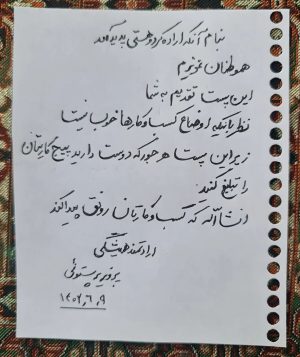 بنام آنکه اراده کرد و هستی پدید آمد
هموطنان عزیزم
این پست تقدیم به شما
نظر باینکه اوضاع کسب و کارها خوب نیست
زیر این پست هر جور که دوست دارید پیج کاریتان
را تبلیغ کنید.
انشاالله که کسب و کارتان رونق پیدا کند
ارادتمند همیشگی
پرویز پرستوئی
۱۴۰۲,۶,۹